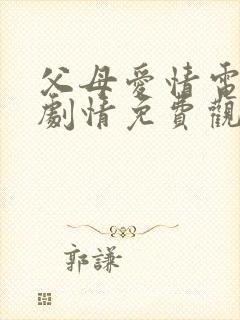 父母愛情電
劇情免費觀
郭謙